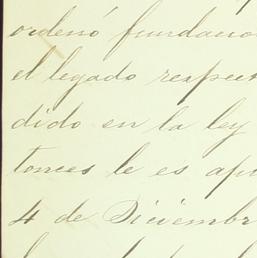 ordenó fundado
el legado respect
dido en la ley
tonces le es apu
4 de Diciembr